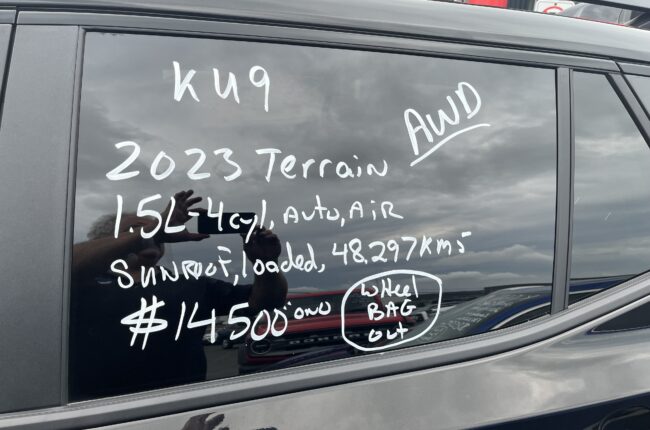 KU9
AWD
2023 Terrain
1.5L-4cyl, Auto, AiR
SUNROOF, loaded, 48,297 KMS
$14500 ONO
WHeel
BAG
OUT